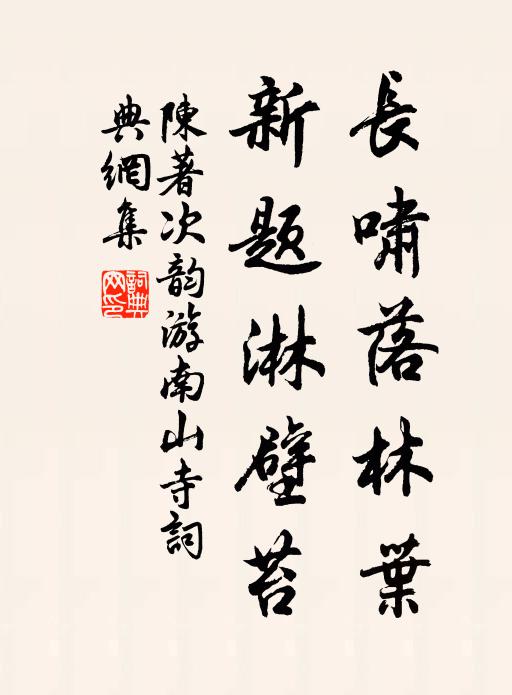 長嘯落林葉
新題淋壁苔
陳著次韵游南山寺詞
典網集
詞典
网印